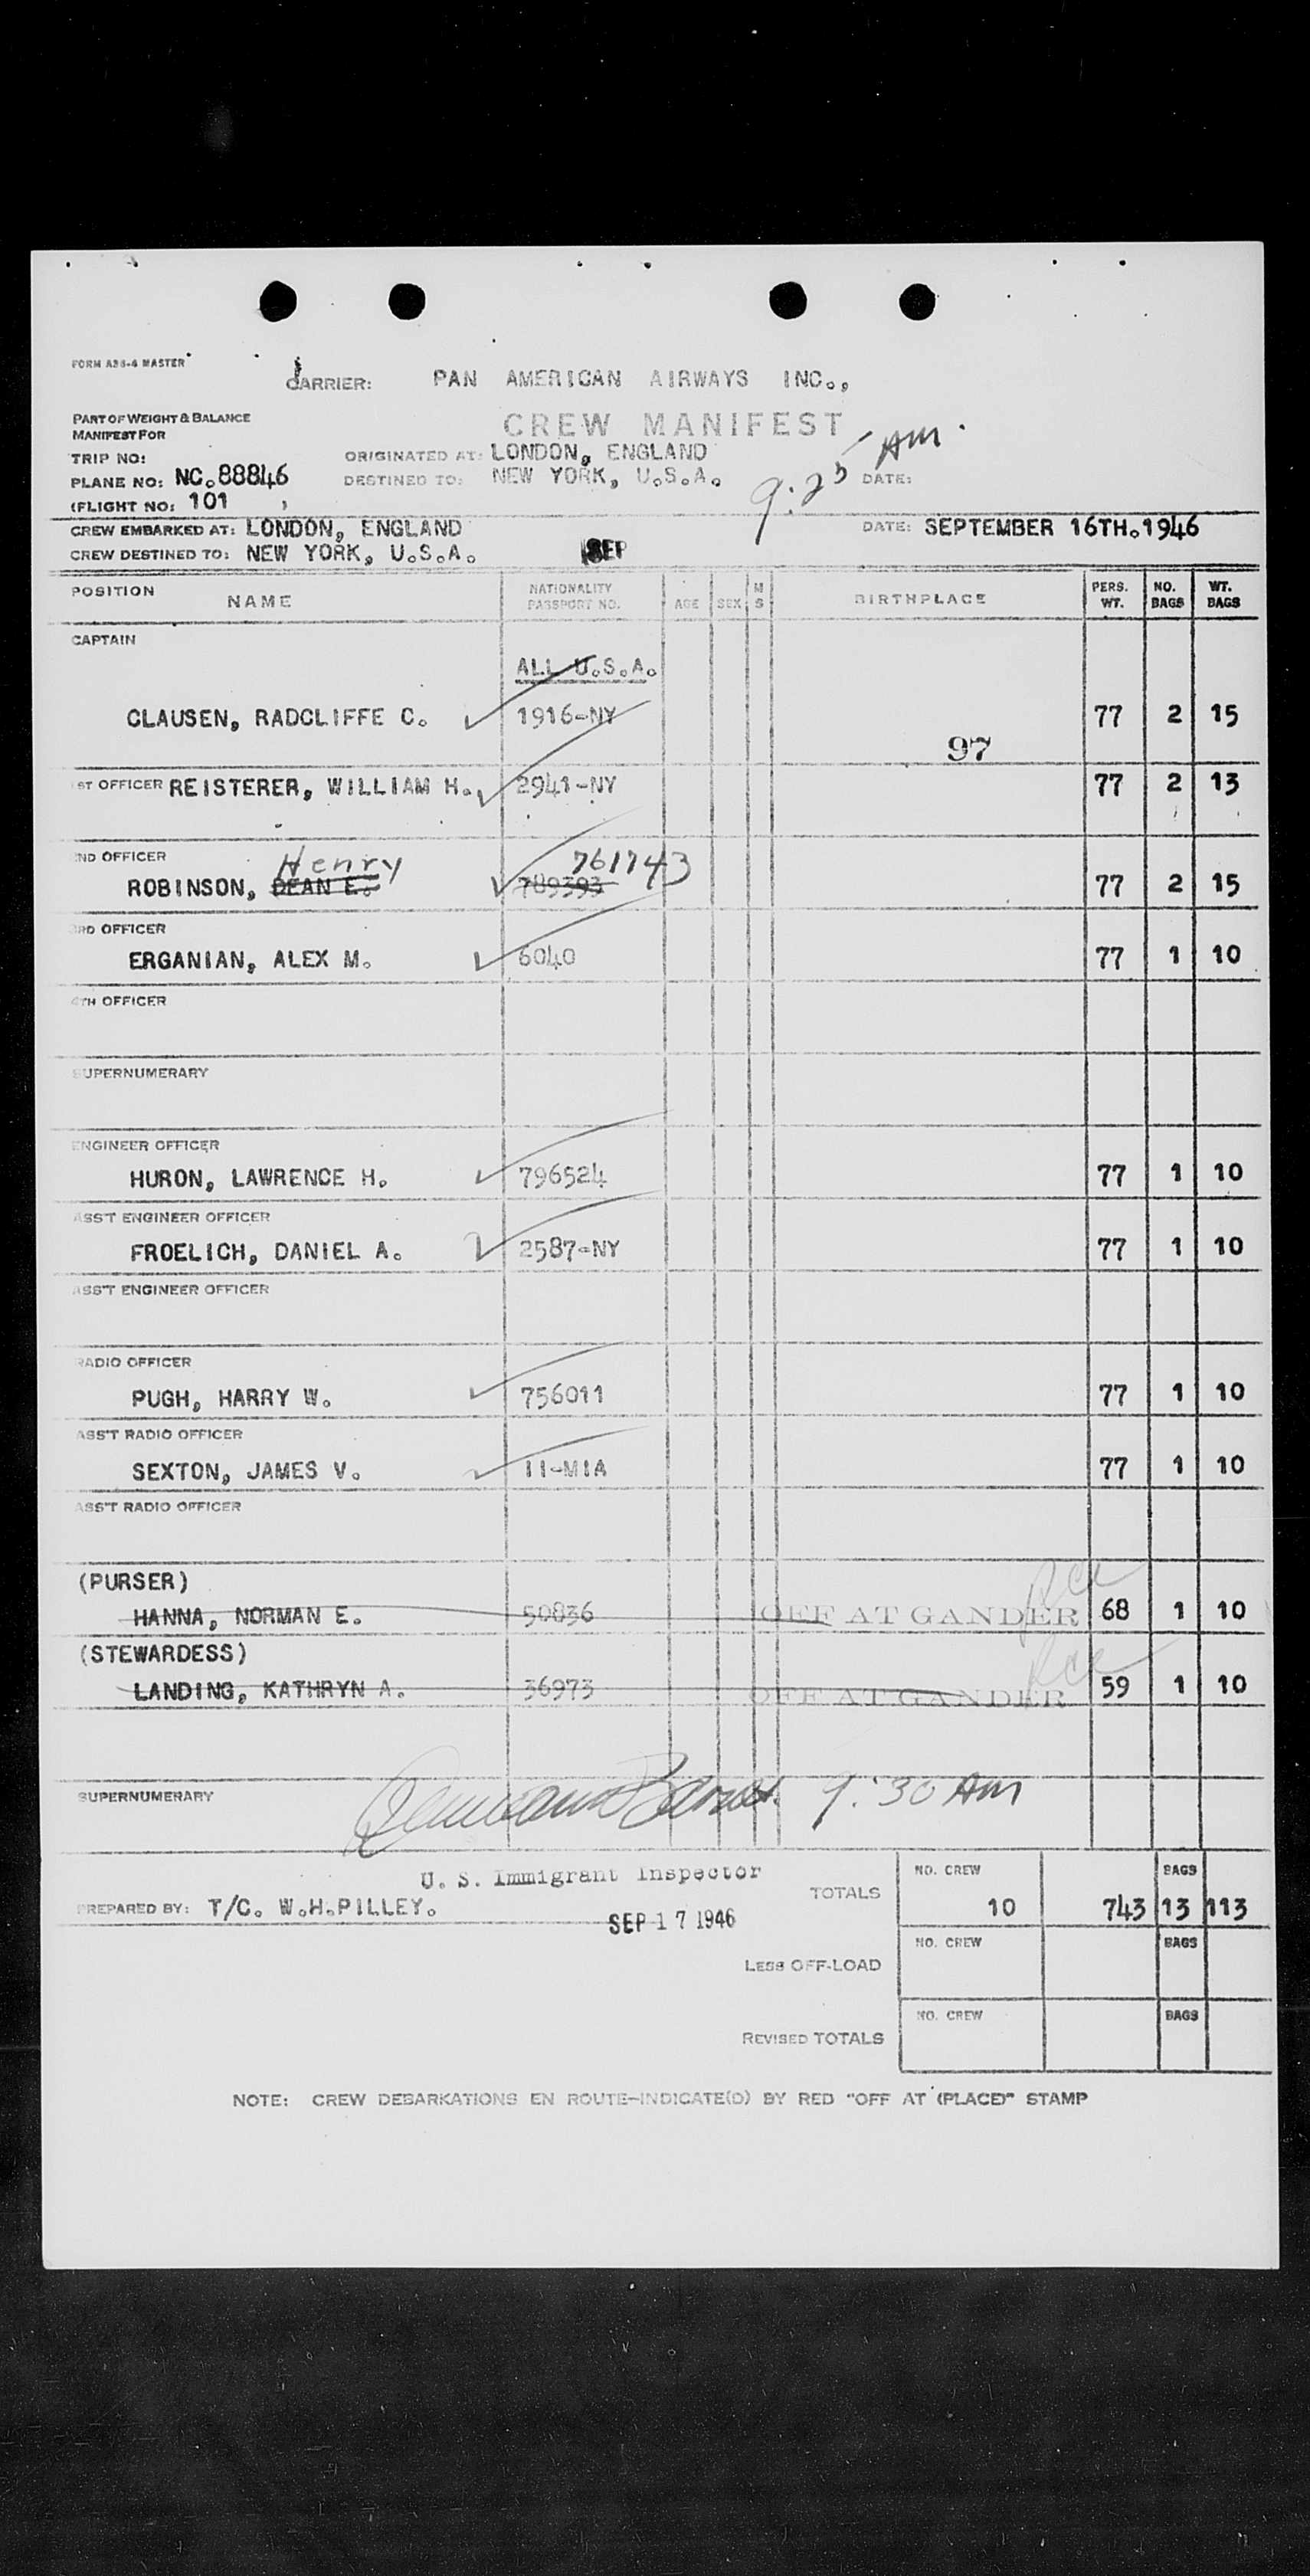 FORM A38-4 MASTER
CARRIER: PAN AMERICAN AIRWAYS INC.,
PART OF WEIGHT & BALANCE
MANIFEST FOR
CREW MANIFEST
9:25 AM.
TRIP NO: ORIGINATED AT: LONDON, ENGLAND
PLANE NO: NC.88846 DESTINED TO: NEW YORK, U.S.A. DATE:
(FLIGHT NO: 101 )
CREW EMBARKED AT: LONDON, ENGLAND DATE: SEPTEMBER 16TH.1946
CREW DESTINED TO: NEW YORK, U.S.A. SEP
POSITION NAME NATIONALITY PASSPORT NO. AGE SEX M S BIRTHPLACE PERS. WT. NO. BAGS WT. BAGS
CAPTAIN
ALL U.S.A.
CLAUSEN, RADCLIFFE C. 1916-NY 77 2 15
97
1ST OFFICER REISTERER, WILLIAM H. 2941-NY 77 2 13
2ND OFFICER Henry 761743
ROBINSON, DEAN E. 789393 77 2 15
3RD OFFICER
ERGANIAN, ALEX M. 6040 77 1 10
4TH OFFICER
SUPERNUMERARY
ENGINEER OFFICER
HURON, LAWRENCE H. 796524 77 1 10
ASS'T ENGINEER OFFICER
FROELICH, DANIEL A. 2587-NY 77 1 10
ASS'T ENGINEER OFFICER
RADIO OFFICER
PUGH, HARRY W. 756011 77 1 10
ASS'T RADIO OFFICER
SEXTON, JAMES V. 11-MIA 77 1 10
ASS'T RADIO OFFICER
(PURSER)
HANNA, NORMAN E. 50836 OFF AT GANDER 68 1 10
(STEWARDESS)
LANDING, KATHRYN A. 36973 OFF AT GANDER 59 1 10
SUPERNUMERARY 9:30 AM
U. S. Immigrant Inspector
PREPARED BY: T/C. W.H.PILLEY.
SEP 17 1946
TOTALS NO. CREW 10 743 BAGS 13 113
LESS OFF-LOAD NO. CREW BAGS
REVISED TOTALS NO. CREW BAGS
NOTE: CREW DEBARKATIONS EN ROUTE-INDICATE(D) BY RED "OFF AT (PLACE)" STAMP